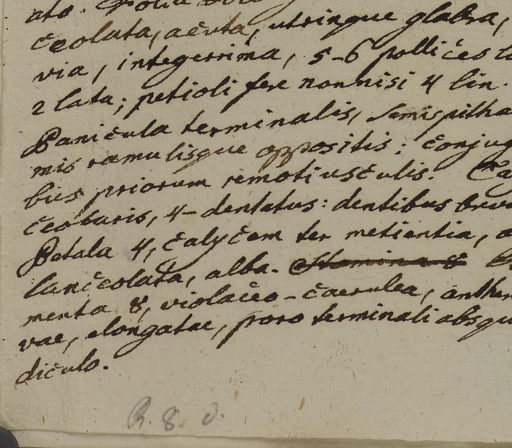 ato. Folia
ceolata, acuta, utrinque glabra,
via, integerrima, 5-6 pollices
2 lata; petioli fere nonnisi 4 lin.
Panicula terminalis, semispitha
mis ramulisque oppositis: conju
bus priorum remotiusculis. Ca
ceolaris, 4-dentatus: dentibus brev
Petala 4, calycem ter metientia, a
lanceolata, alba. Stamina 8
menta 8, violaceo-caerulea, anther
vae, elongatae, poro terminali absqu
diculo.
R. 8. d.